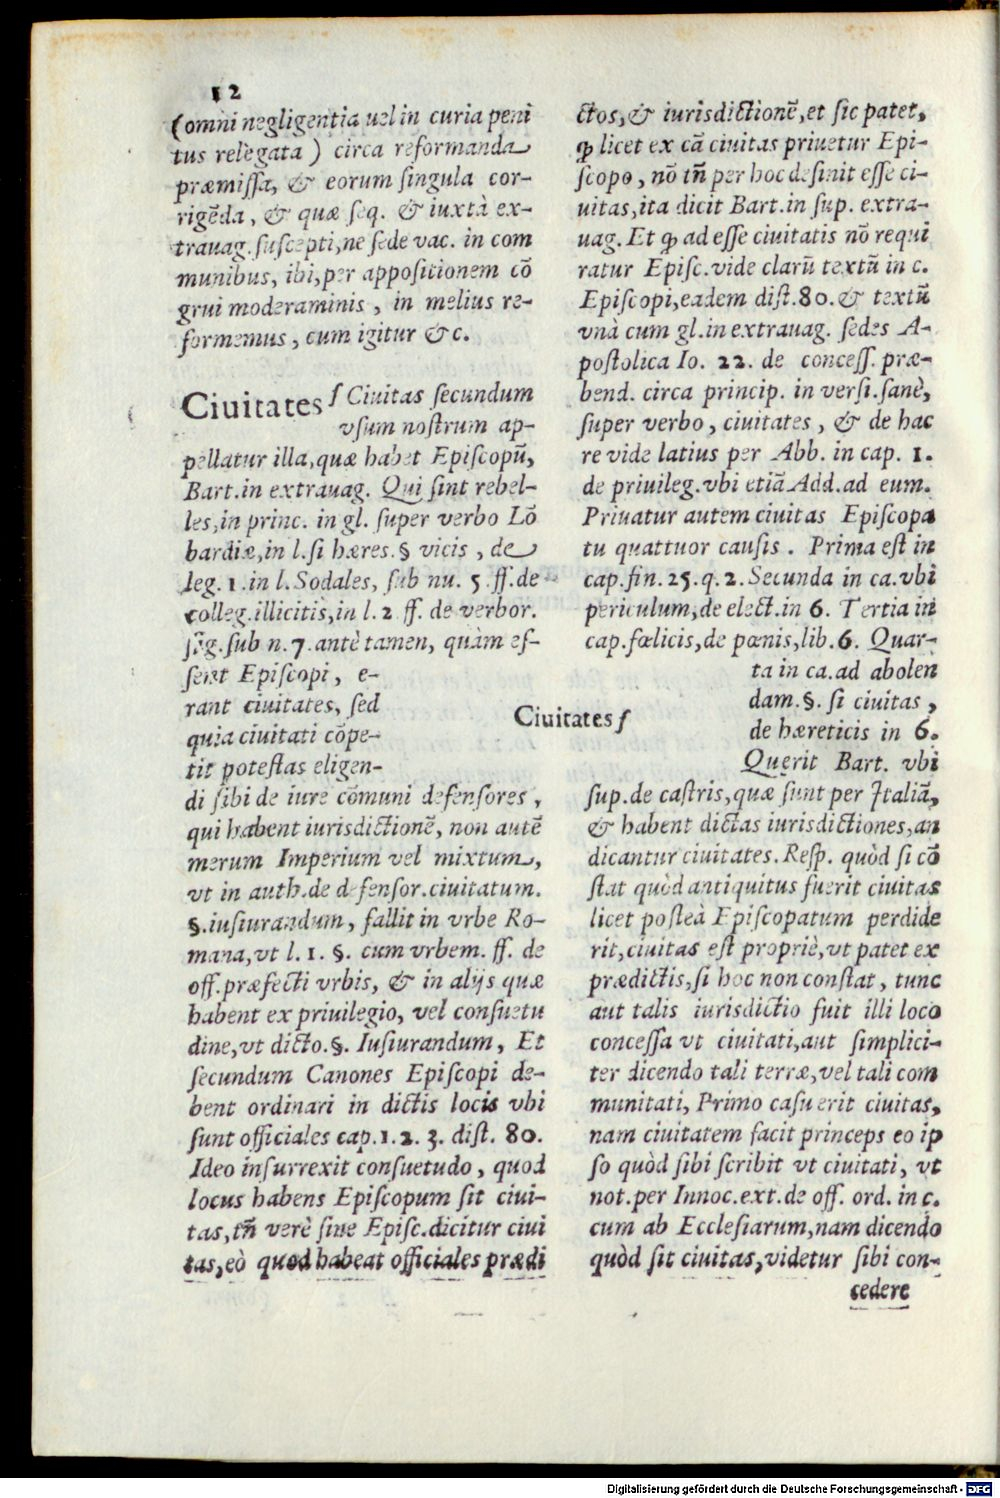 12
(omni negligentia uel in curia peni
tus relegata) circa reformanda
præmissa, & eorum singula cor-
rigẽda, & quæ seq. & iuxtà ex-
trauag. suscepti, ne sede vac. in com
munibus, ibi, per appositionem cõ
grui moderaminis, in melius re-
formemus, cum igitur &c.
Ciuitates ſ Ciuitas secundum
vsum nostrum ap-
pellatur illa, quæ habet Episcopũ,
Bart. in extrauag. Qui sint rebel-
les, in princ. in gl. super verbo Lõ
bardiæ, in l. si hæres. § vicis, de
leg. 1. in l. Sodales, sub nu. 5. ff. de
colleg. illicitis, in l. 2. ff. de verbor.
sig. sub n. 7. antè tamen, quàm es-
sent Episcopi, e-
rant ciuitates, sed
quia ciuitati cõpe-
tit potestas eligen-
di sibi de iure cõmuni defensores,
qui habent iurisdictionẽ, non autẽ
merum Imperium vel mixtum,
vt in auth. de defensor. ciuitatum.
§. iusiurandum, fallit in vrbe Ro-
mana, vt l. 1. §. cum vrbem. ff. de
off. præfecti vrbis, & in alijs quæ
habent ex priuilegio, vel consuetu
dine, vt dicto. §. Iusiurandum, Et
secundum Canones Episcopi de-
bent ordinari in dictis locis vbi
sunt officiales cap. 1. 2. 3. dist. 80.
Ideo insurrexit consuetudo, quod
locus habens Episcopum sit ciui-
tas, tñ verè sine Episc. dicitur ciui
tas, eò quod habeat officiales prædi
ctos, & iurisdictionẽ, et sic patet,
ꝙ licet ex cã ciuitas priuetur Epi-
scopo, nõ tñ per hoc desinit esse ci-
uitas, ita dicit Bart. in sup. extra-
uag. Et ꝙ ad esse ciuitatis nõ requi
ratur Episc. vide clarũ textũ in c.
Episcopi, eadem dist. 80. & textũ
vnà cum gl. in extrauag. sedes A-
postolica Io. 22. de concess. præ-
bend. circa princip. in versi. sanè,
super verbo, ciuitates, & de hac
re vide latius per Abb. in cap. 1.
de priuileg. vbi etiã Add. ad eum.
Priuatur autem ciuitas Episcopa
tu quattuor causis. Prima est in
cap. fin. 25. q. 2. Secunda in ca. vbi
periculum, de elect. in 6. Tertia in
cap. fœlicis, de pœnis, lib. 6. Quar-
ta in ca. ad abolen
dam. §. si ciuitas,
Ciuitates ſ
de hæreticis in 6.
Querit Bart. vbi
sup. de castris, quæ sunt per Italiã,
& habent dictas iurisdictiones, an
dicantur ciuitates. Resp. quòd si cõ
stat quòd antiquitus fuerit ciuitas
licet posteà Episcopatum perdide
rit, ciuitas est propriè, vt patet ex
prædictis, si hoc non constat, tunc
aut talis iurisdictio fuit illi loco
concessa vt ciuitati, aut simplici-
ter dicendo tali terræ, vel tali com
munitati, Primo casu erit ciuitas,
nam ciuitatem facit princeps eo ip
so quòd sibi scribit vt ciuitati, vt
not. per Innoc. ext. de off. ord. in c.
cum ab Ecclesiarum, nam dicendo
quòd sit ciuitas, videtur sibi con-
cedere
Digitalisierung gefördert durch die Deutsche Forschungsgemeinschaft - DFG